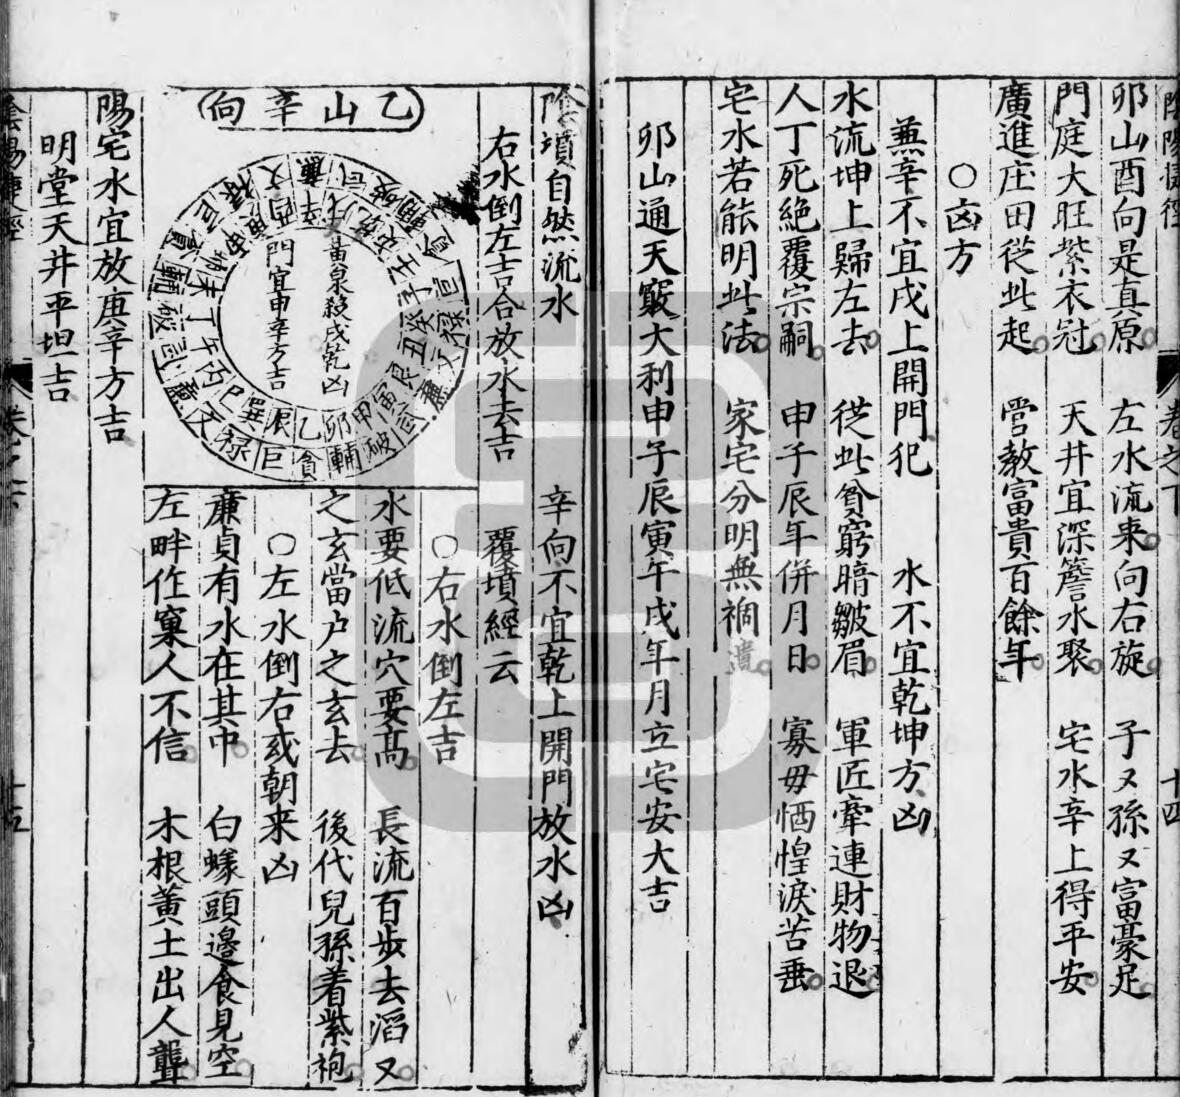 陰陽捷徑 卷之下 十四
卯山酉向是真原 左水流来向右旋 子又孫又富豪足
門庭大旺紫衣冠 天井宜深簷水聚 宅水辛上得平安
廣進庄田從此起 管教富貴百餘年
○凶方
兼辛不宜戌上開門犯 水不宜乾坤方凶
水流坤上歸左去 從此貧窮暗皺眉 軍匠牽連財物退
人丁死絕覆宗嗣 申子辰年併月日 寡毋恓惶淚苦垂
宅水若能明此法 家宅分明無禍遺
卯山通天竅大利申子辰寅午戌年月立宅安大吉
陰墳自然流水 辛向不宜乾上開門放水凶
右水倒左吉合放水去吉 覆墳經云
乙山辛向
黃泉殺戌乾凶
門宜申辛方吉
○右水倒左吉
水要低流穴要高 長流百步去滔又
之玄當户之玄去 後代兒孫着紫袍
○左水倒右或朝来凶
廉貞有水在其中 白蟻頭邊食見空
左畔作窠人不信 木根黃土出人聾
陽宅水宜放庚辛方吉
明堂天井平坦吉
陰陽捷徑 卷之下 十五